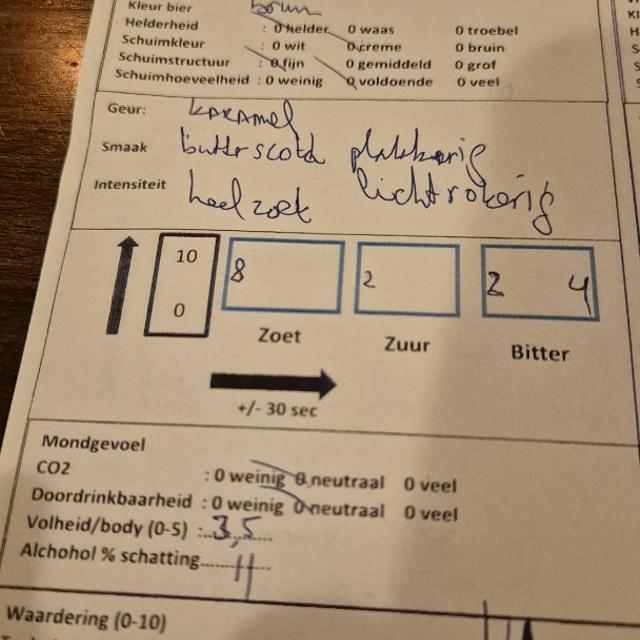 Kleur bier bruin
Helderheid : 0 helder 0 waas 0 troebel
Schuimkleur : 0 wit 0 creme 0 bruin
Schuimstructuur : 0 fijn 0 gemiddeld 0 grof
Schuimhoeveelheid : 0 weinig 0 voldoende 0 veel
Geur: karamel
Smaak butterscotch plakkerig
Intensiteit heel zoet lichtrokerig
10
0
8
2
2 4
Zoet
Zuur
Bitter
+/- 30 sec
Mondgevoel
CO2 : 0 weinig 0 neutraal 0 veel
Doordrinkbaarheid : 0 weinig 0 neutraal 0 veel
Volheid/body (0-5) :..3,5....
Alchohol % schatting......11....
Waardering (0-10)